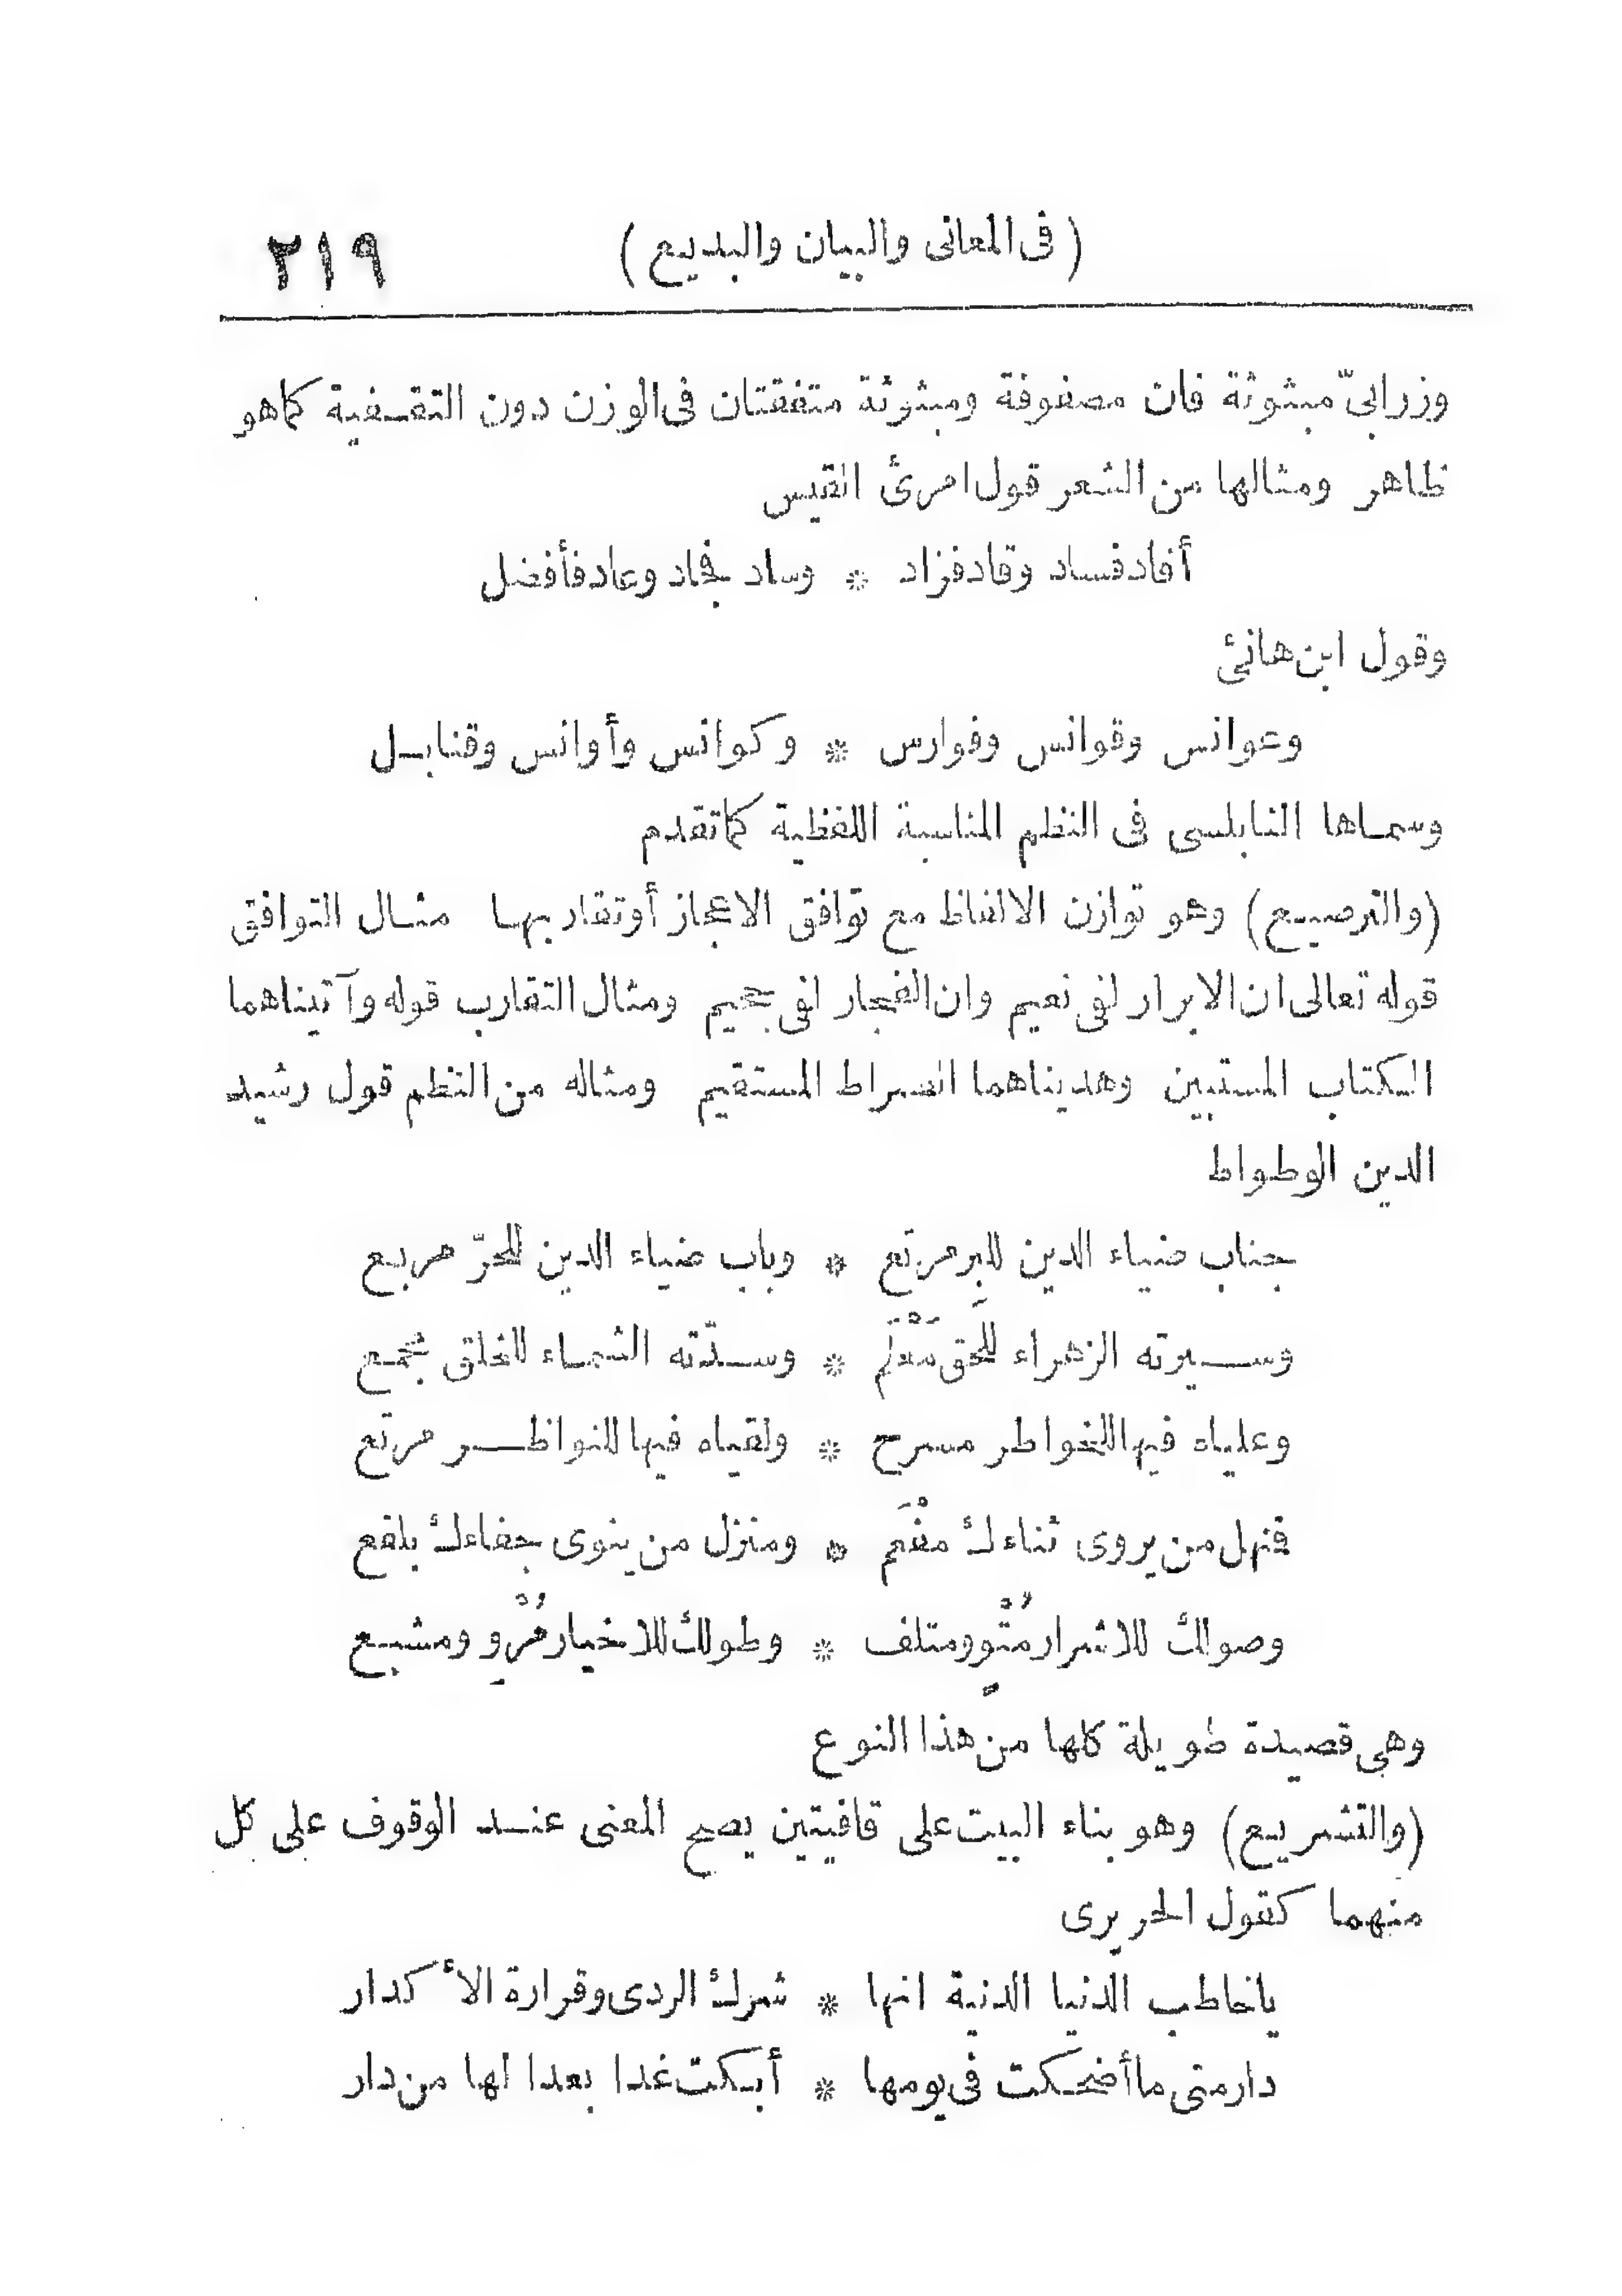 (فى المعانى والبيان والبديع) ٢١٩
وزرابىّ مبثوثة فان مصفوفة ومبثوثة متفقتان فى الوزن دون التقفية كماهو
ظاهر ومثالها من الشعر قول امرئ القيس
أفاد فساد وقاد فزاد * وساد فجاد وعاد فأفضل
وقول ابن هانئ
وعوانس وقوانس وفوارس * وكوانس وأوانس وقنابل
وسماها النابلسى فى النظم المناسبة اللفظية كماتقدم
(والترصيع) وهو توازن الالفاظ مع توافق الاعجاز أوتقاربها مثال التوافق
قوله تعالى ان الابرار لفى نعيم وان الفجار لفى جحيم ومثال التقارب قوله وآتيناهما
الكتاب المستبين وهديناهما الصراط المستقيم ومثاله من النظم قول رشيد
الدين الوطواط
جناب ضياء الدين للبِر مرتع * وباب ضياء الدين للحرّ مربع
وسيرته الزهراء للحَق مَعْلَم * وسدّته الشماء للخلق مجمع
وعلياه فيها للخواطر مسرح * ولقياه فيها للنواظر مرتع
فنهل من يروى ثناءك مفْعَم * ومنزل من ينوى جفاءك بلقع
وصولك للاشرار مُتْوٍ ومتلف * وطولك للاخيار مُرْوٍ ومشبع
وهى قصيدة طويلة كلها من هذا النوع
(والتشريع) وهو بناء البيت على قافيتين يصح المعنى عند الوقوف على كل
منهما كقول الحريرى
ياخاطب الدنيا الدنية انها * شرك الردى وقرارة الأكدار
دار متى ما أضحكت فى يومها * أبكت غدا بعدا لها من دار